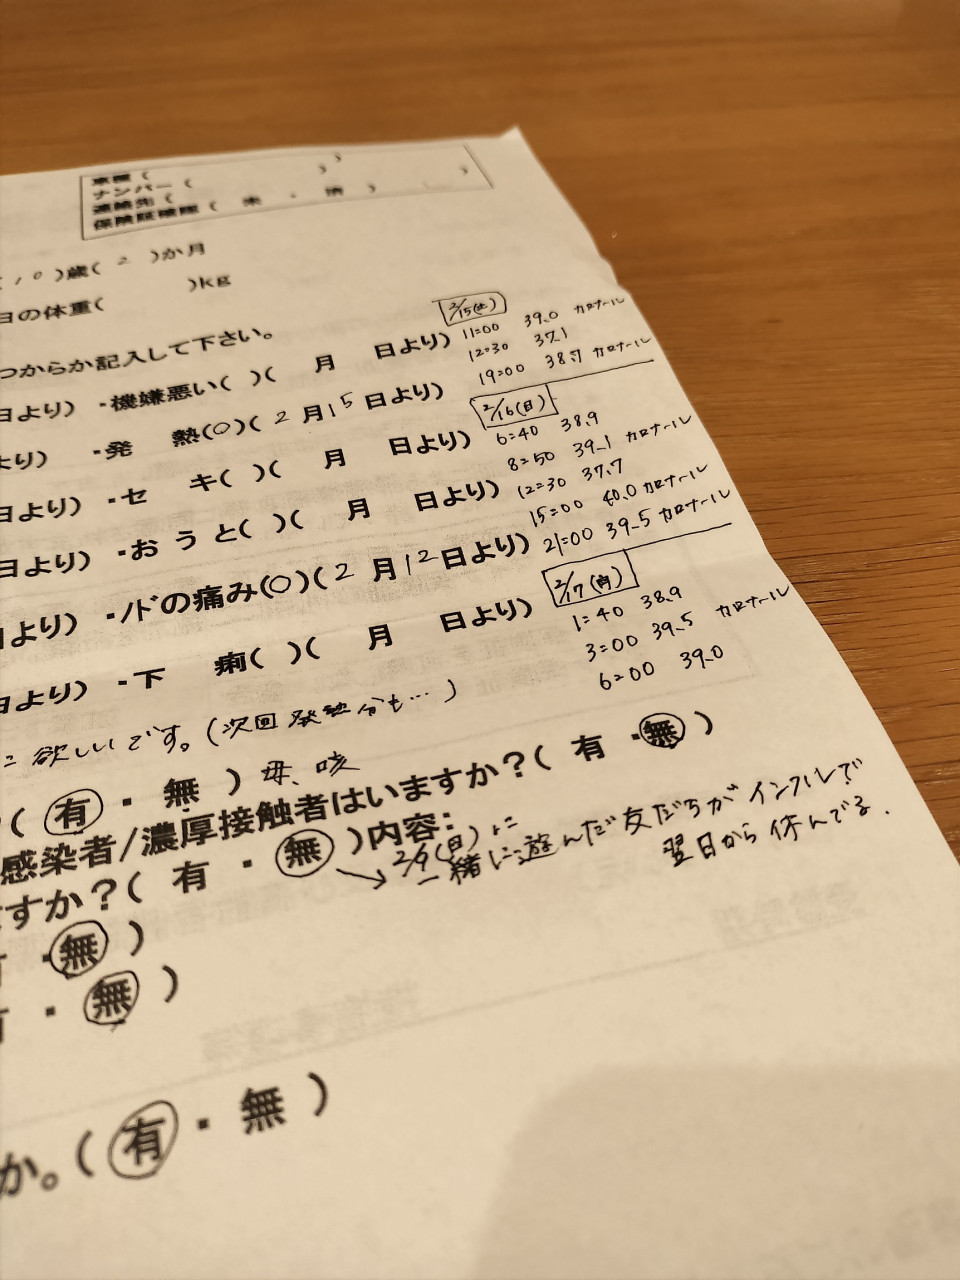 車種(　　　)
ナンバー(　　　)
連絡先(　　　)
保険証確認(　未　・　済　)
(10)歳(2)か月
日の体重(　　　)kg
つからか記入して下さい。
日より)　・機嫌悪い(　)(　月　日より)
より)　・発　熱(○)(2月15日より)
日より)　・セ　キ(　)(　月　日より)
日より)　・おうと(　)(　月　日より)
日より)　・ノドの痛み(○)(2月12日より)
日より)　・下　痢(　)(　月　日より)
2/15(土)
11:00　39.0　カロナール
12:30　37.1
19:00　38.7　カロナール
2/16(日)
6:40　38.9
8:50　39.1　カロナール
12:30　37.7
15:00　40.0　カロナール
21:00　39.5　カロナール
2/17(月)
1:40　38.9
3:00　39.5　カロナール
6:00　39.0
欲しいです。(次回発熱分も…)
(有・無)母、咳
感染者/濃厚接触者はいますか?(有・無)
すか?(有・無)内容:
→2/9(日)に
一緒に遊んだ友だちがインフルで
翌日から休んでる.
・無)
・無)
か。(有・無)